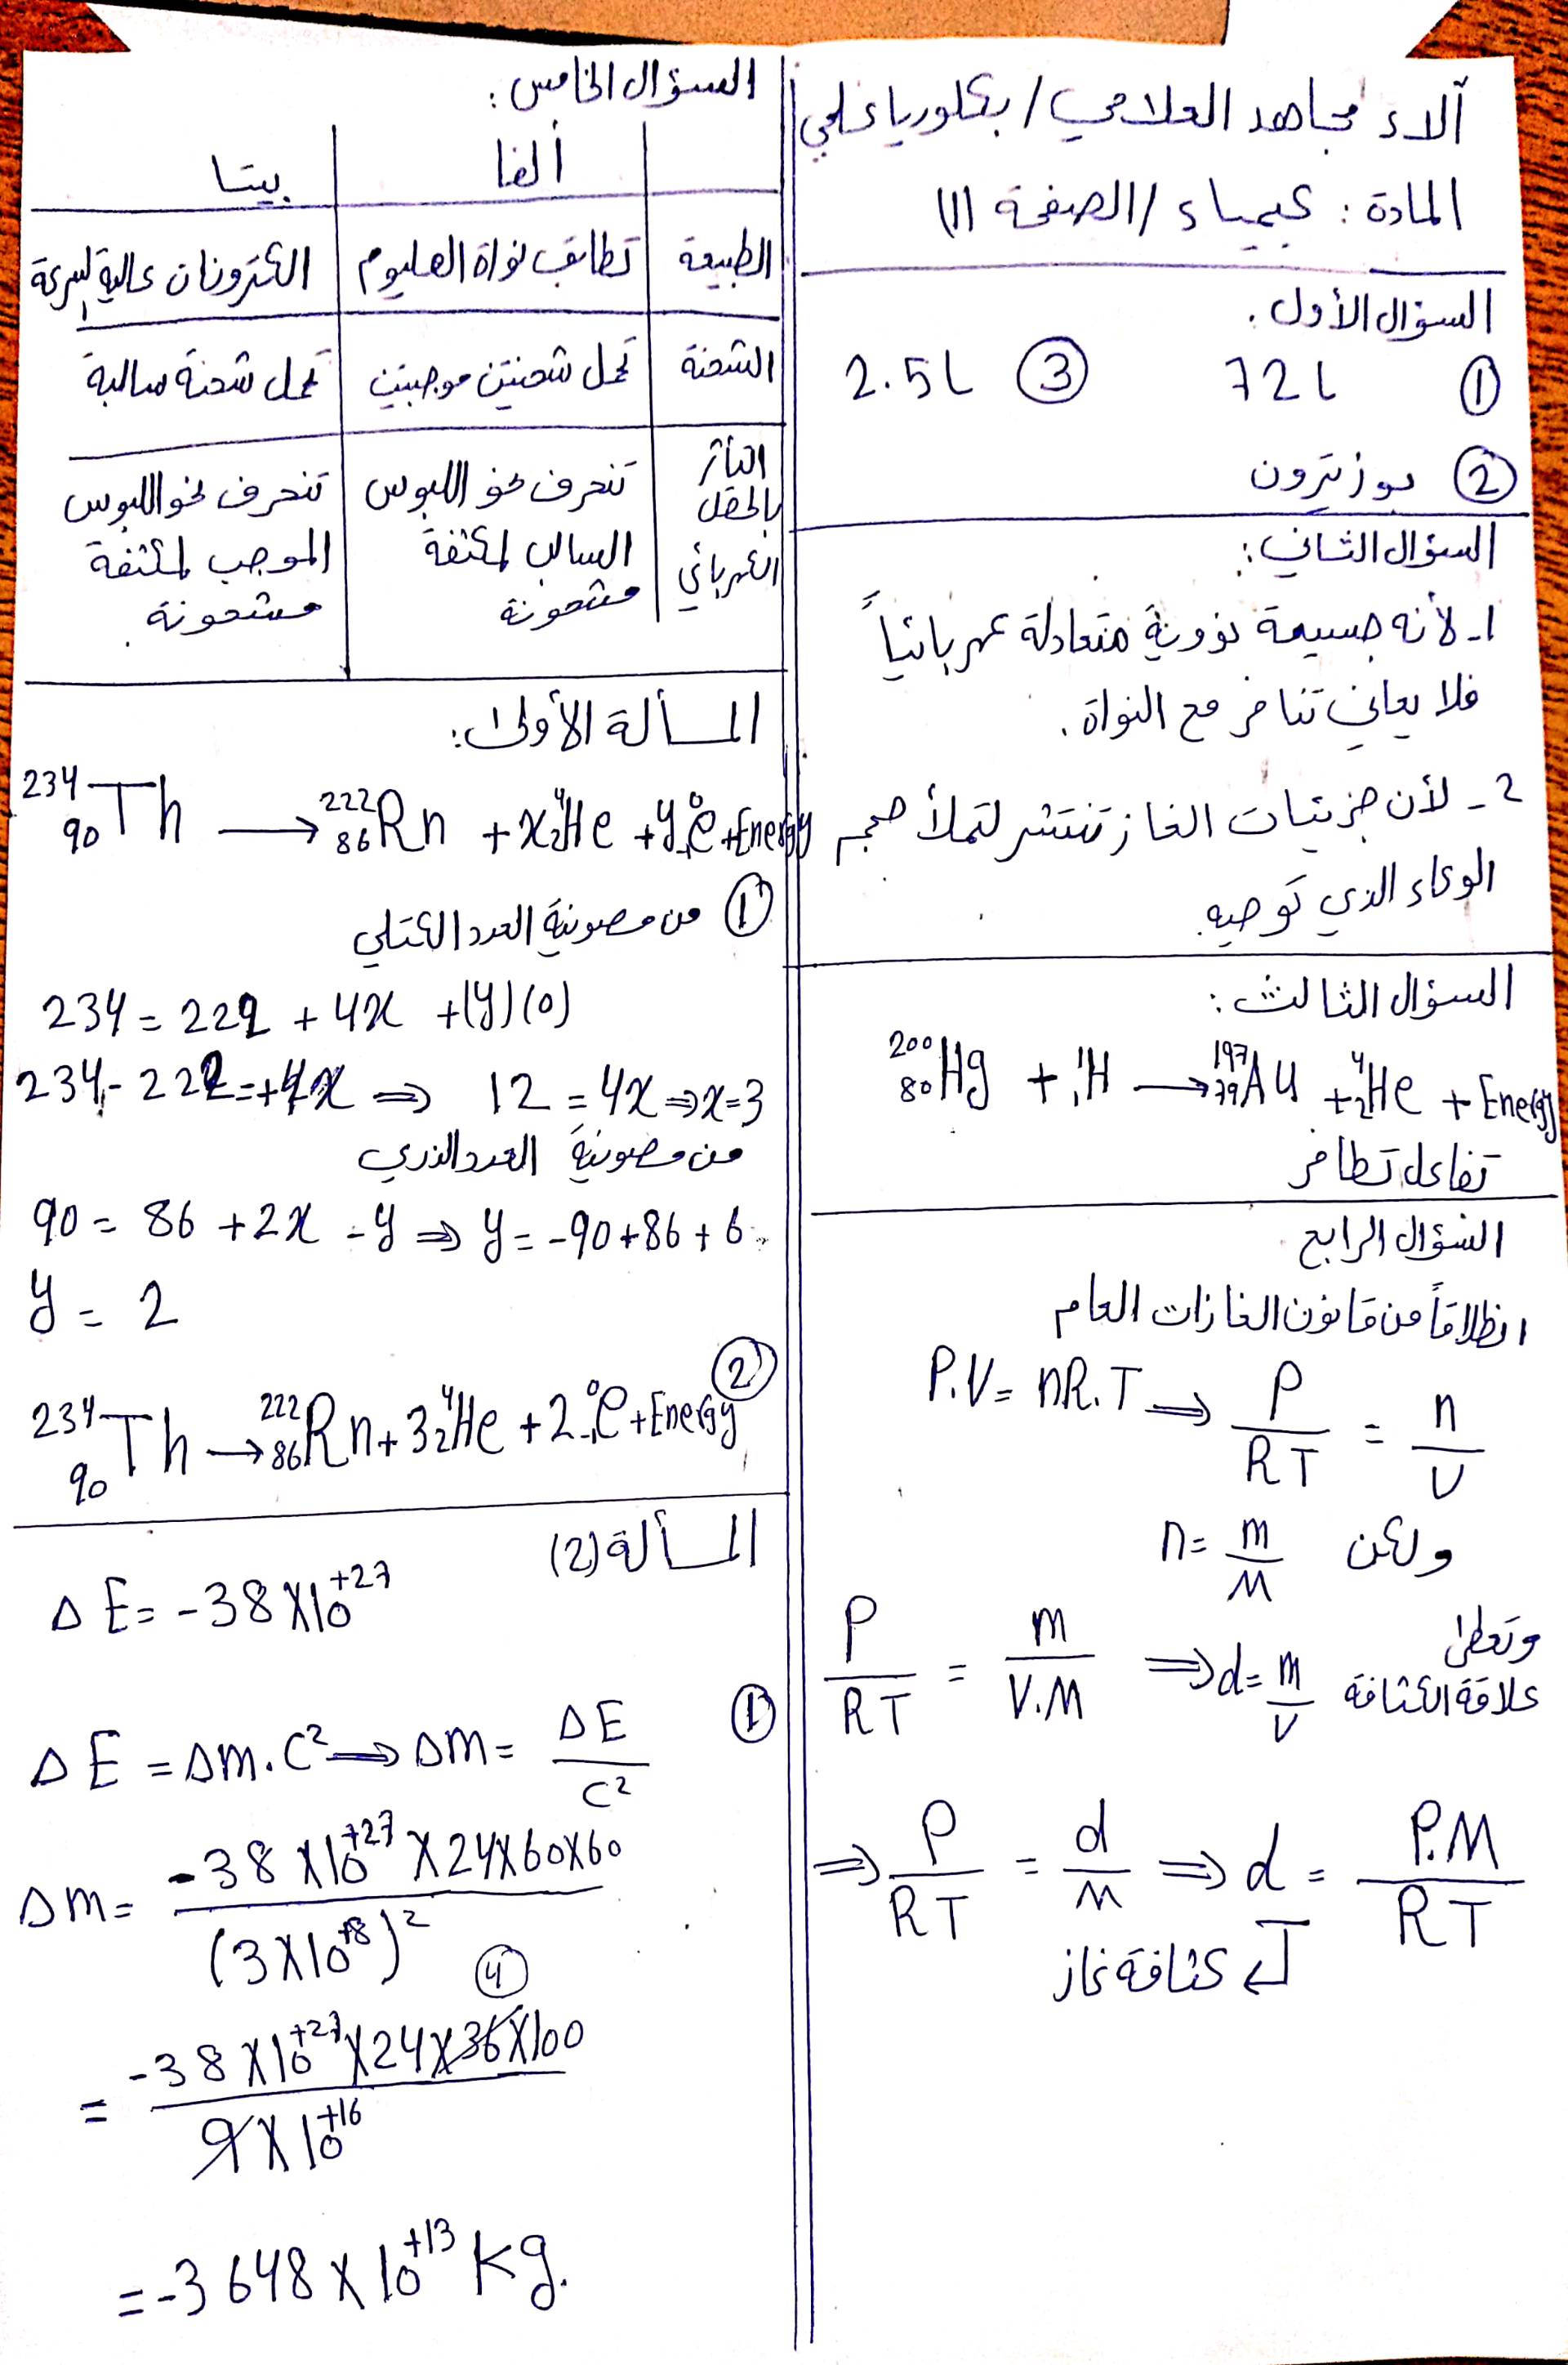 آلاء مجاهد العلامي / بكلوريا علمي
المادة : كيمياء / الصفحة (1)
السؤال الأول .
① 72 L ③ 2.5 L
② بوزيترون
السؤال الثاني :
1- لأنه جسيمة نووية متعادلة كهربائياً
فلا يعاني تنافر مع النواة .
2- لأن جزيئات الغاز تنتشر لتملأ حجم
الوعاء الذي توجد به.
السؤال الثالث :
²⁰⁰₈₀Hg + ¹₁H → ¹⁹⁷₇₉Au + ⁴₂He + Energy
تفاعل تطافر
السؤال الرابع
انطلاقاً من قانون الغازات العام
P.V = nR.T ⇒ P/RT = n/V
ولكن n = m/M
وتعطى
علاقة الكثافة
P/RT = m/V.M ⇒ d = m/V
⇒ P/RT = d/M ⇒ d = P.M/RT
كثافة غاز
السؤال الخامس :
ألفا بيتا
الطبيعة تطابق نواة الهليوم الكترونات عالية السرعة
الشحنة تحمل شحنتين موجبتين تحمل شحنة سالبة
التأثر تنحرف نحو اللبوس تنحرف نحو اللبوس
بالحقل السالب لمكثفة الموجب لمكثفة
الكهربائي مشحونة مشحونة .
المسألة الأولى :
²³⁴₉₀Th → ²²²₈₆Rn + x⁴₂He + y⁰₋₁e + Energy
① من مصونية العدد الكتلي
234 = 222 + 4x + (y)(0)
234 - 222 = +4x ⇒ 12 = 4x ⇒ x = 3
من مصونية العدد الذري
90 = 86 + 2x - y ⇒ y = -90 + 86 + 6
y = 2
②
²³⁴₉₀Th → ²²²₈₆Rn + 3⁴₂He + 2⁰₋₁e + Energy
المسألة (2)
ΔE = -38 × 10⁺²⁷
①
ΔE = Δm.C² ⇒ Δm = ΔE/C²
Δm = -38 × 10⁺²⁷ × 24 × 60 × 60 / (3 × 10⁺⁸)²
④
= -38 × 10⁺²⁷ × 24 × 36 × 100 / 9 × 10⁺¹⁶
= -3648 × 10⁺¹³ kg.